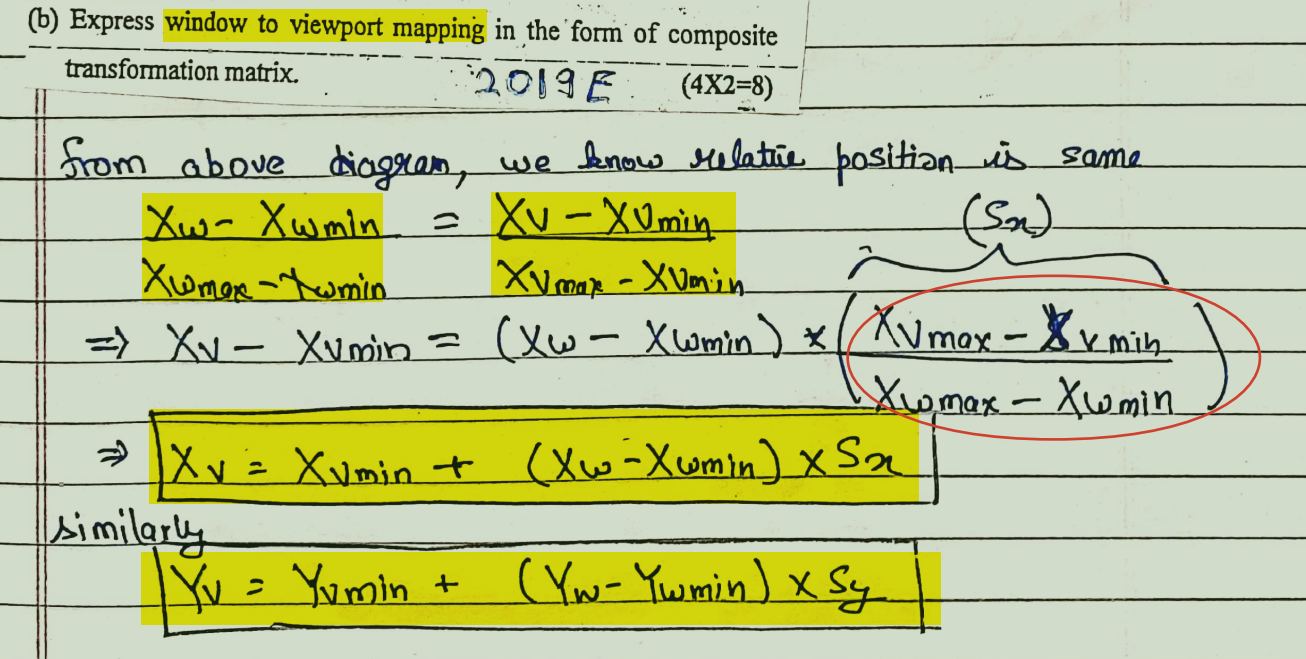 (b) Express window to viewport mapping in the form of composite
transformation matrix. 2019E (4X2=8)
from above diagram, we know relative position is same
(Sx)
Xw - Xwmin = Xv - Xvmin
Xwmax - Xwmin Xvmax - Xvmin
⇒ Xv - Xvmin = (Xw - Xwmin) * (Xvmax - Xvmin
Xwmax - Xwmin)
⇒ Xv = Xvmin + (Xw - Xwmin) x Sx
similarly
Yv = Yvmin + (Yw - Ywmin) x Sy